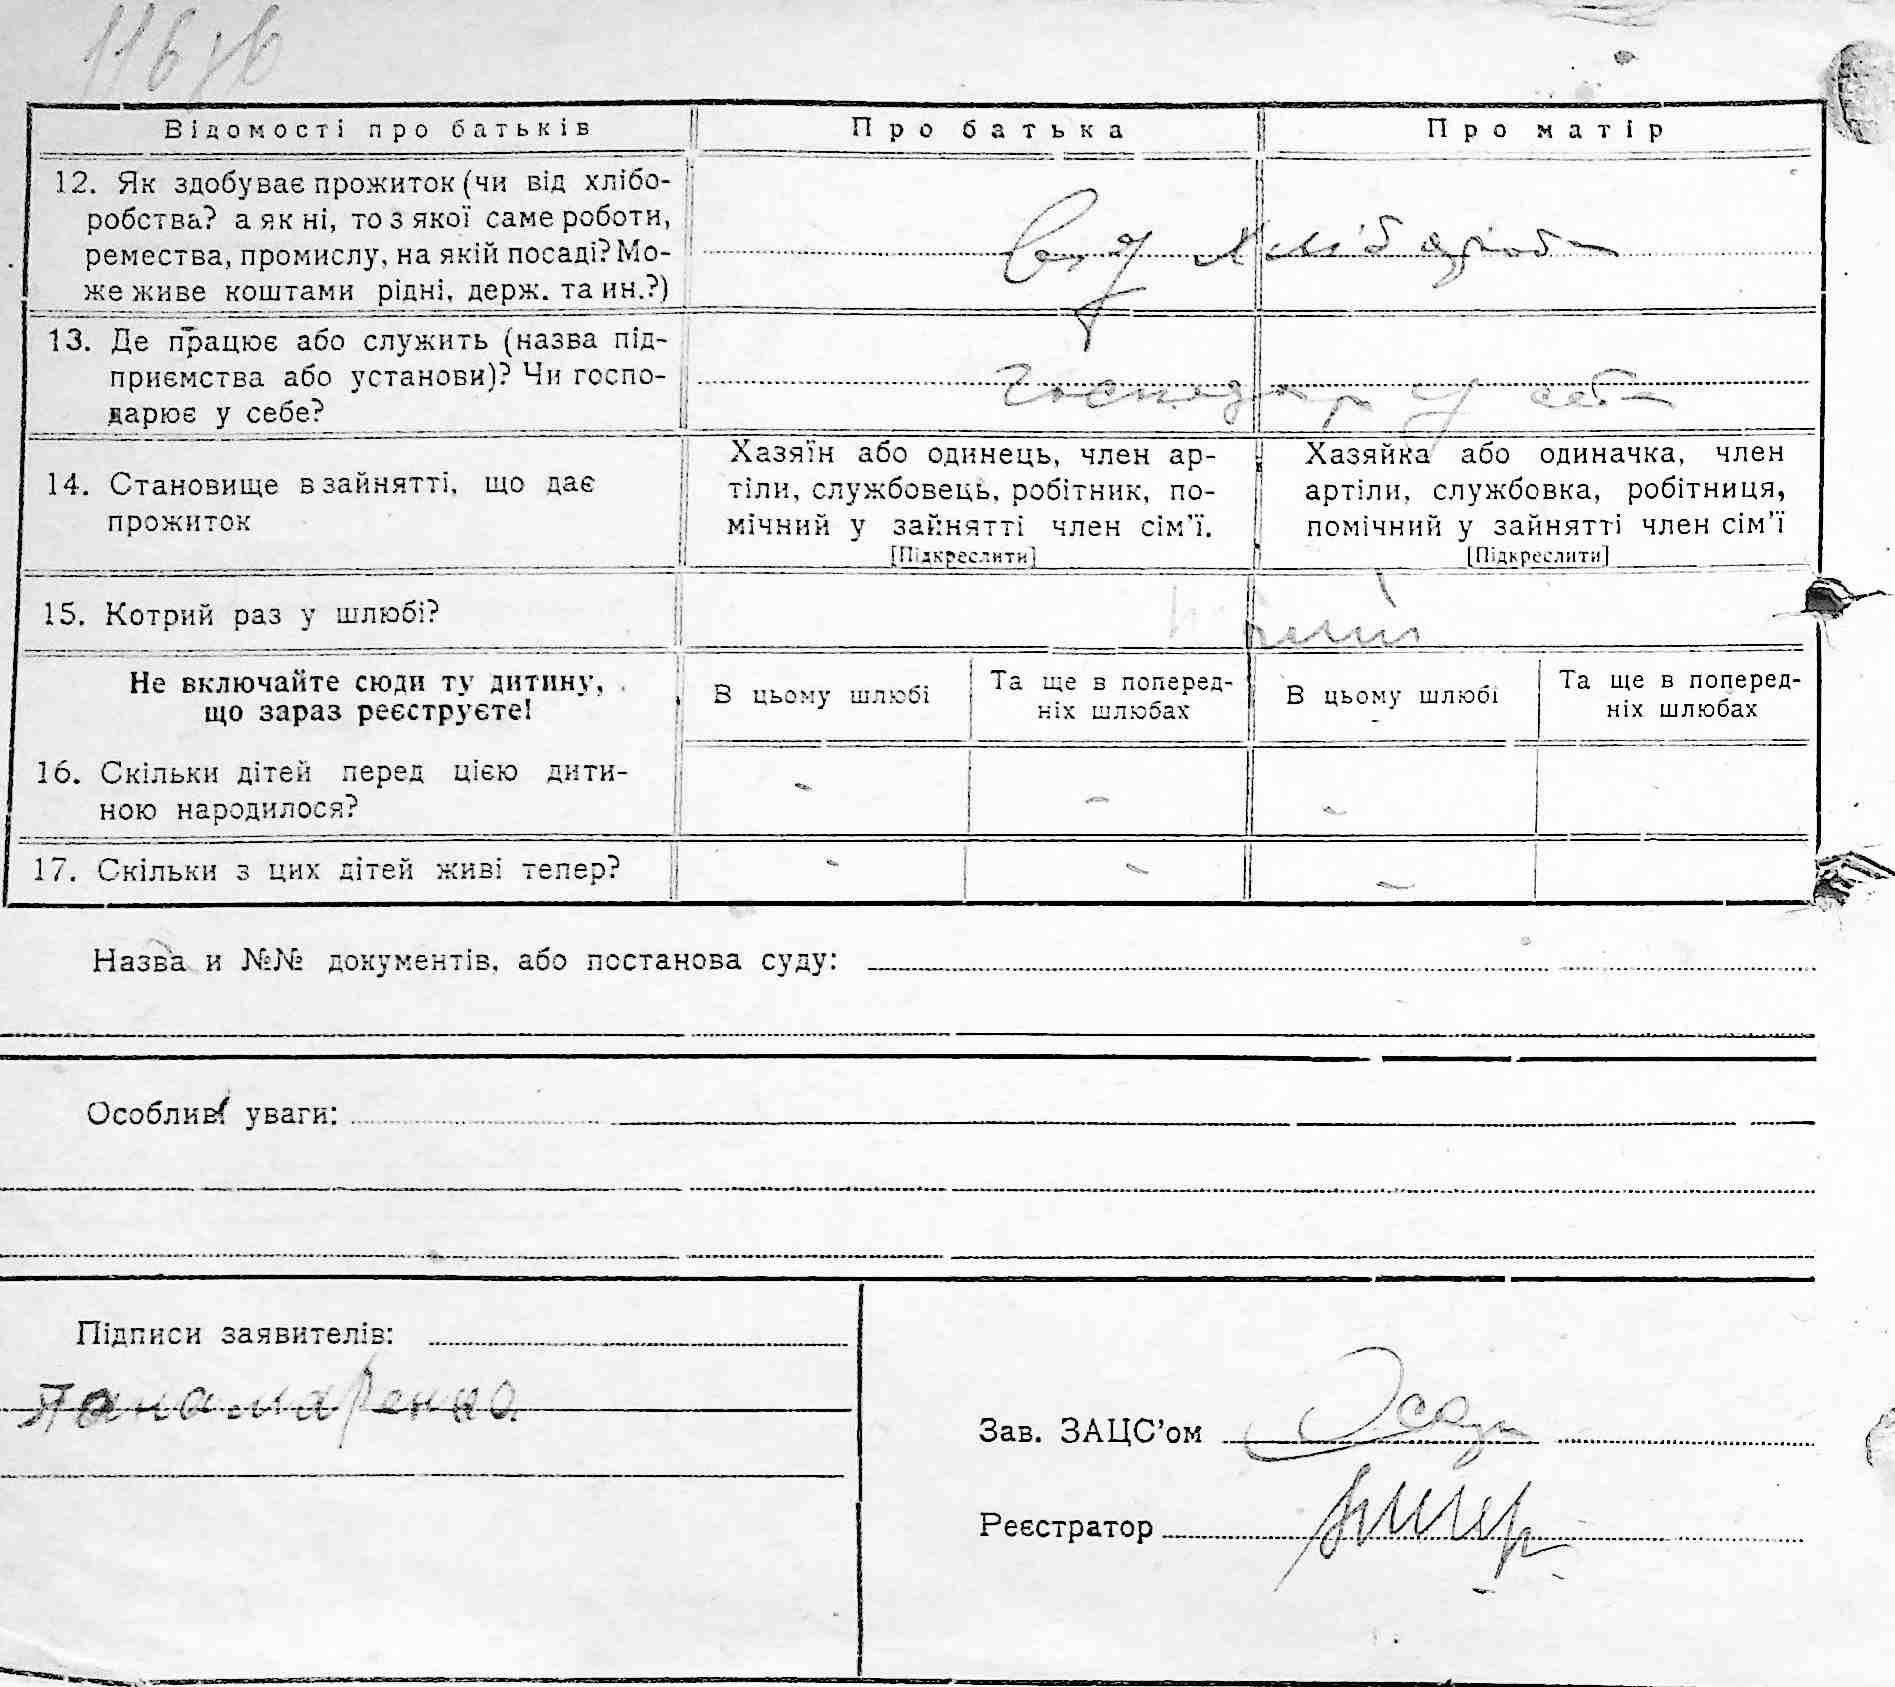 116 зв
Відомості про батьків
Про батька
Про матір
12. Як здобуває прожиток (чи від хлібо-
робства? а як ні, то з якої саме роботи,
ремества, промислу, на якій посаді? Мо-
же живе коштами рідні, держ. та ин.?)
13. Де працює або служить (назва під-
приємства або установи)? Чи госпо-
дарює у себе?
Господар у себе
14. Становище в зайнятті, що дає
прожиток
Хазяїн або одинець, член ар-
тіли, службовець, робітник, по-
мічний у зайнятті член сім'ї.
[Підкреслити]
Хазяйка або одиначка, член
артіли, службовка, робітниця,
помічний у зайнятті член сім'ї
[Підкреслити]
15. Котрий раз у шлюбі?
Не включайте сюди ту дитину,
що зараз реєструєте!
В цьому шлюбі
Та ще в поперед-
ніх шлюбах
В цьому шлюбі
Та ще в поперед-
ніх шлюбах
16. Скільки дітей перед цією дити-
ною народилося?
- - -
17. Скільки з цих дітей живі тепер?
- - -
Назва и №№ документів, або постанова суду:
Особливі уваги:
Підписи заявителів:
Панамаренко
Зав. ЗАЦС'ом
Реєстратор